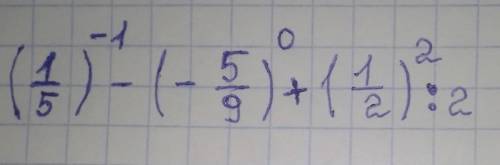 (1/5)^-1 - (-5/9)^0 + (1/2)^2 : 2